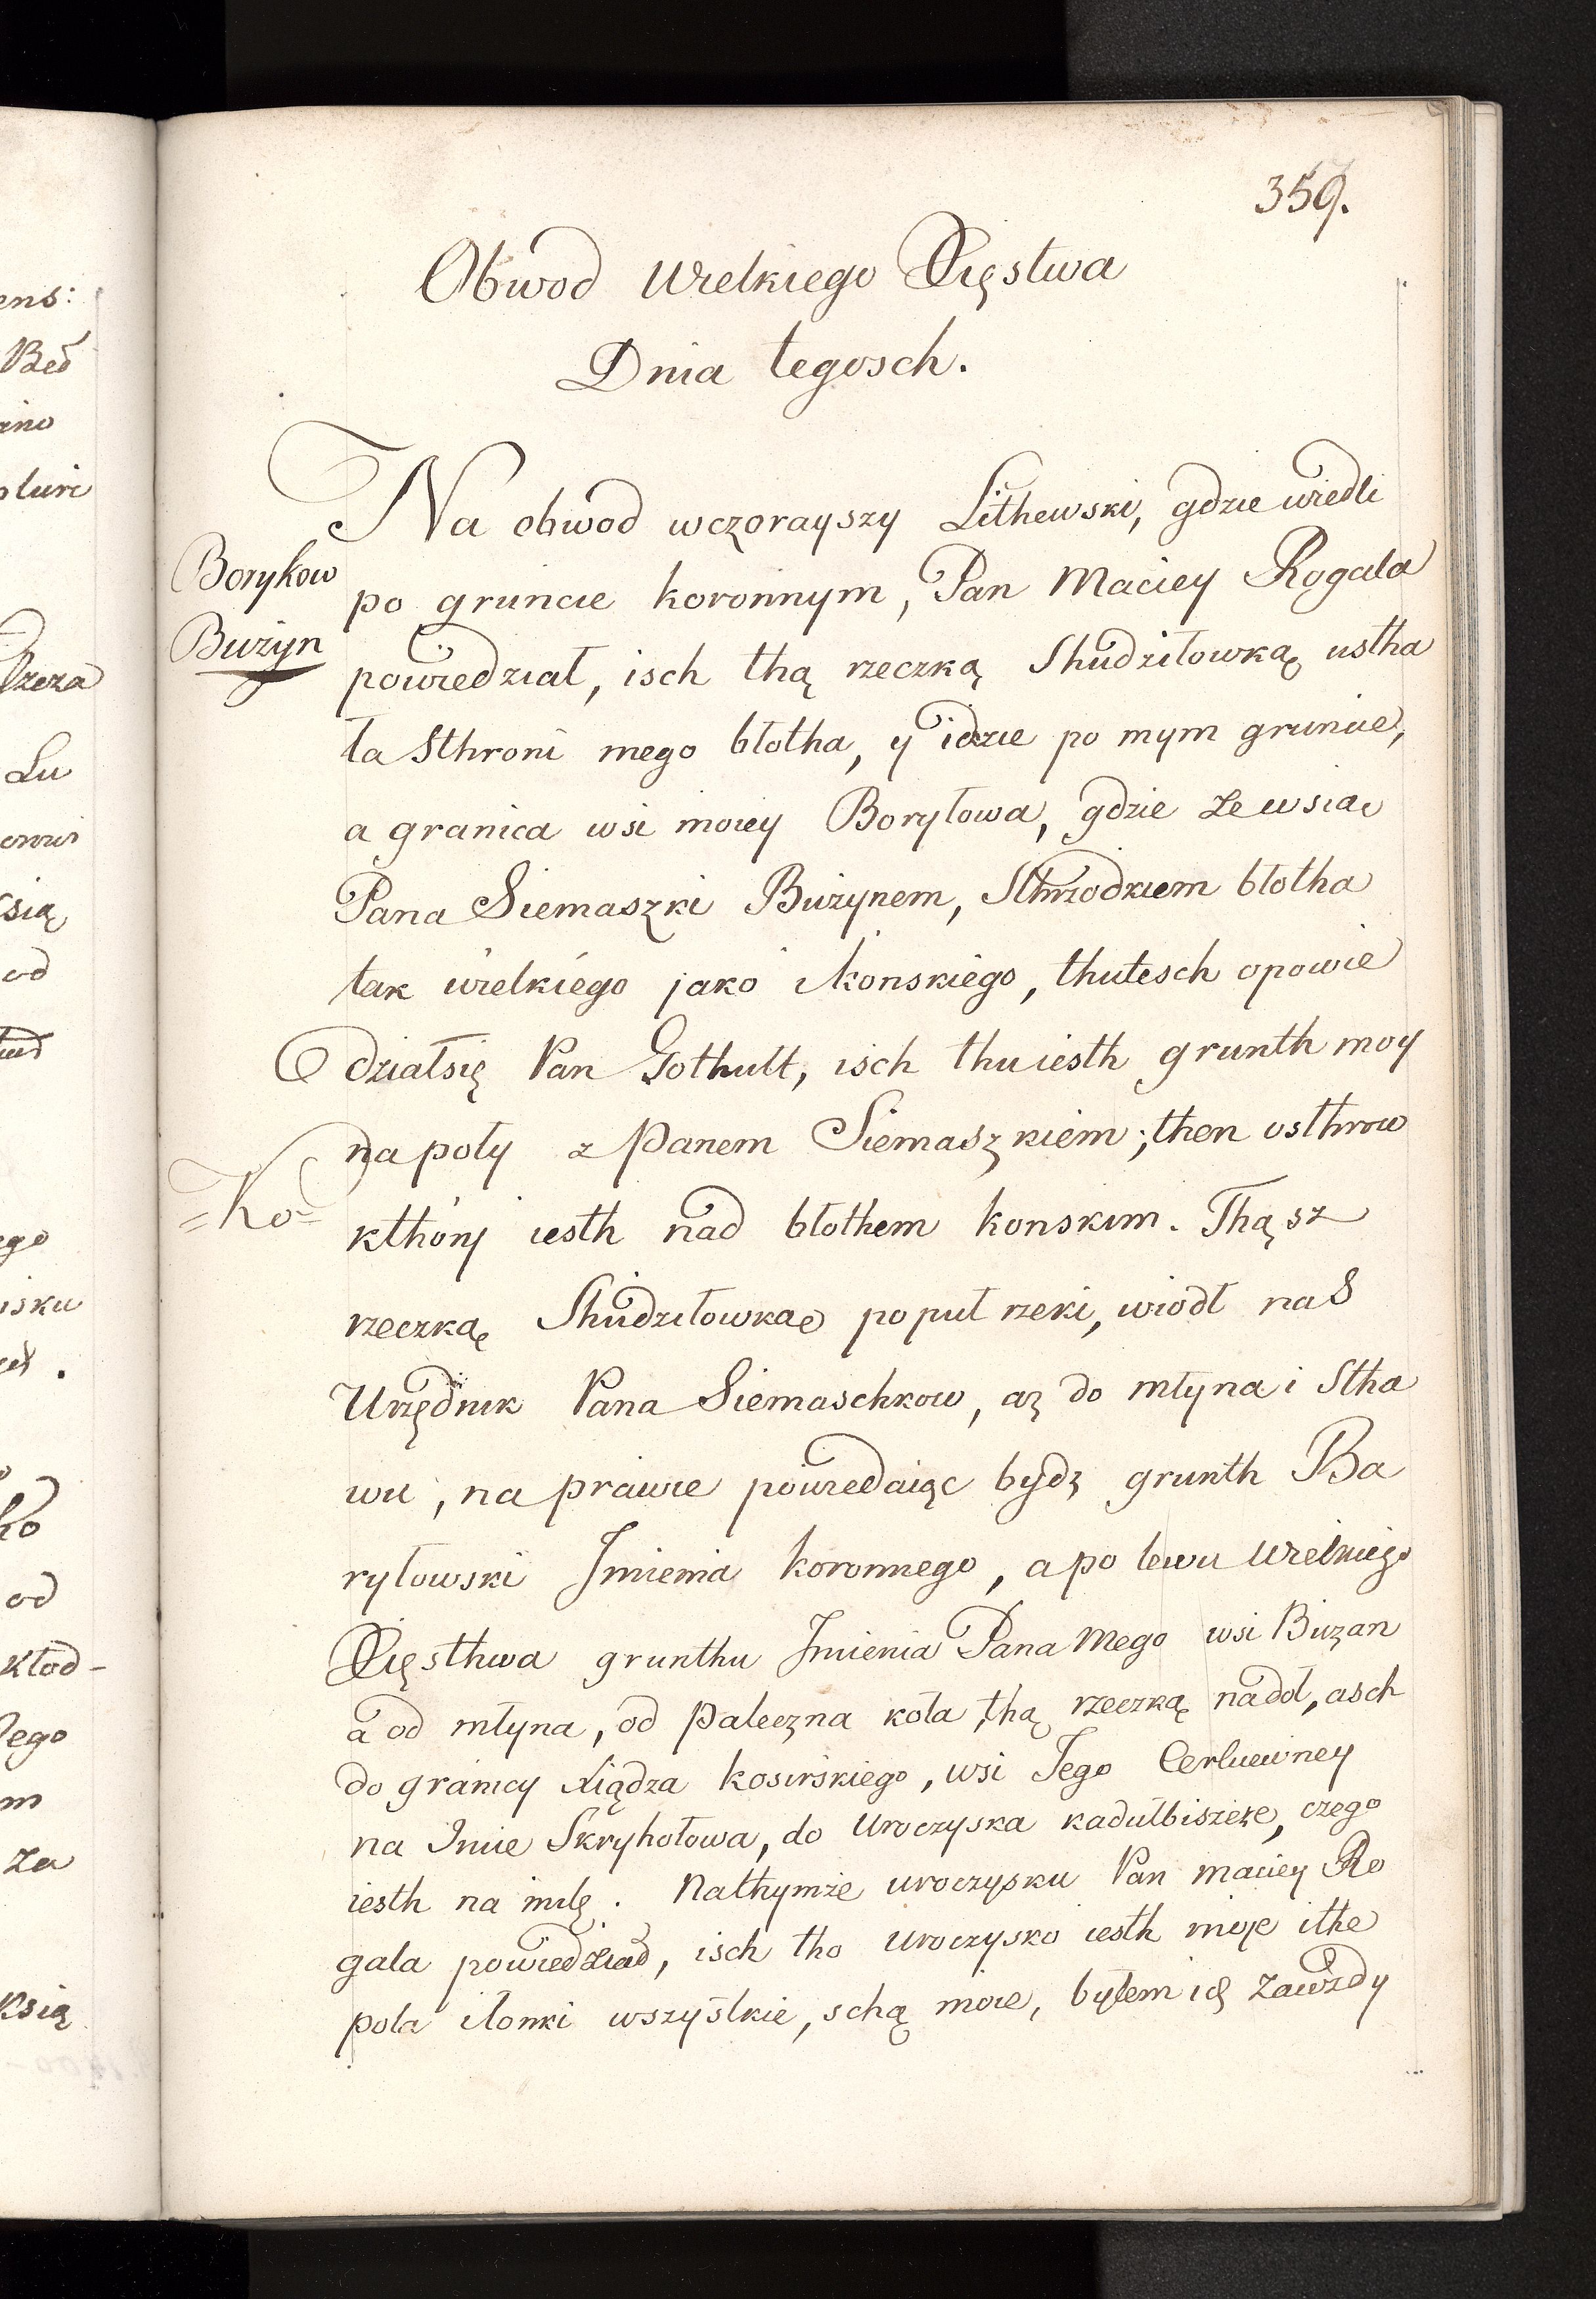 359.
Obwod Wielkiego Xięstwa
Dnia tegosch.
Na obwod wczorayszy Lithewski, gdzie wiedli
Borykow
po gruncie koronnym, Pan Maciey Rogala
Bużyn
powiedział, isch thą rzeczką Studziłowką ustha
ła Sthroni mego błotha, y idzie po mym gruncie,
a granica wsi moiey Boryłowa, gdzie ze wsią
Pana Siemaszki Bużynem, Sthrzodkiem błotha
tak wielkiego jako ikonskiego, thutesch opowie
działsię Pan Gothult, isch thu iesth grunth moy
na poły z Panem Siemaszkiem; then osthrow
=Ko=
kthory iesth nad błothem konskim. Thą sz
rzeczką Studziłowką po puł rzeki, wiodł nas
Urzędnik Pana Siemaschkow, aż do młyna i Stha
wu, na prawie powiedaiąc bydź grunth Ba
ryłowski Jmienia koronnego, a po lewu Wielkiego
Xięsthwa grunthu Jmienia Pana Mego wsi Buzan
a od młyna, od paleczna koła, thą rzeczką nadoł, asch
do granicy Xiądza kosirskiego, wsi Jego Cerkiewney
na Imie Skryhołowa, do Uroczyska kadułbiszcze, czego
iesth na milę. Nathymże uroczysku Pan Maciey Ro
gala powiedział, isch tho Uroczysko iesth moje ithe
pola iłonki wszystkie, schą moie, byłem ich zawżdy